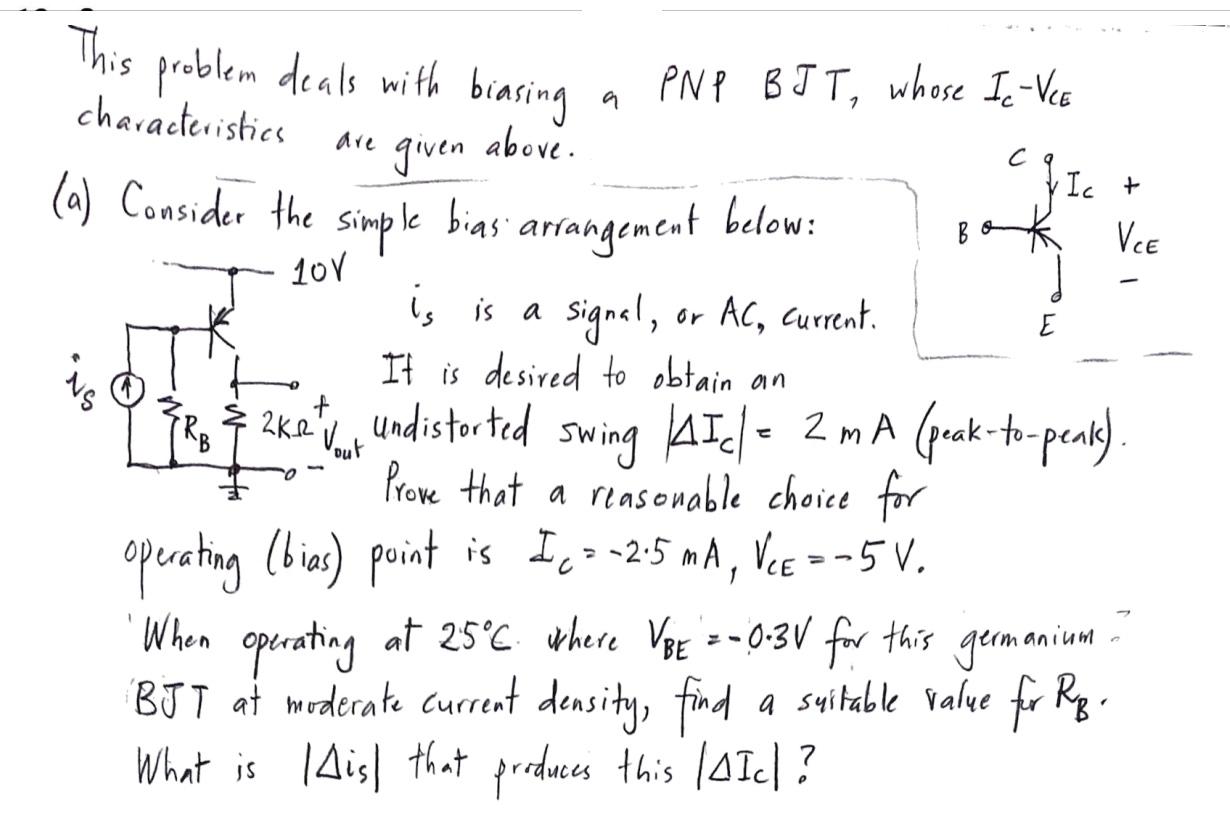 This problem deals with biasing a PNP BJT, whose Ic-VCE
characteristics are given above.
C
Ic +
B
VCE
-
E
(a) Consider the simple bias arrangement below:
10V
is is a signal, or AC, current.
It is desired to obtain an
is
RB
2KΩ
+
Vout
-
undistorted swing |ΔIc| = 2 mA (peak-to-peak).
Prove that a reasonable choice for
operating (bias) point is Ic = -2.5 mA, VCE = -5 V.
When operating at 25°C where VBE = -0.3V for this germanium
BJT at moderate current density, find a suitable value for RB.
What is |Δis| that produces this |ΔIc| ?